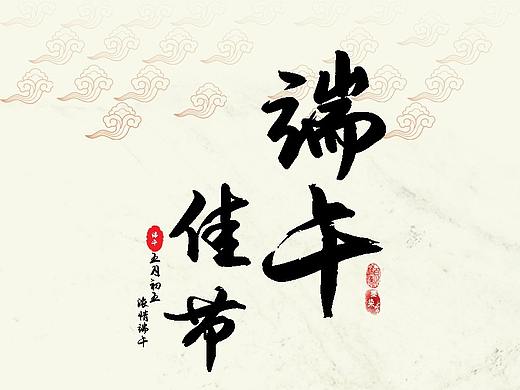 端午
佳节
端午
五月初五
浓情端午